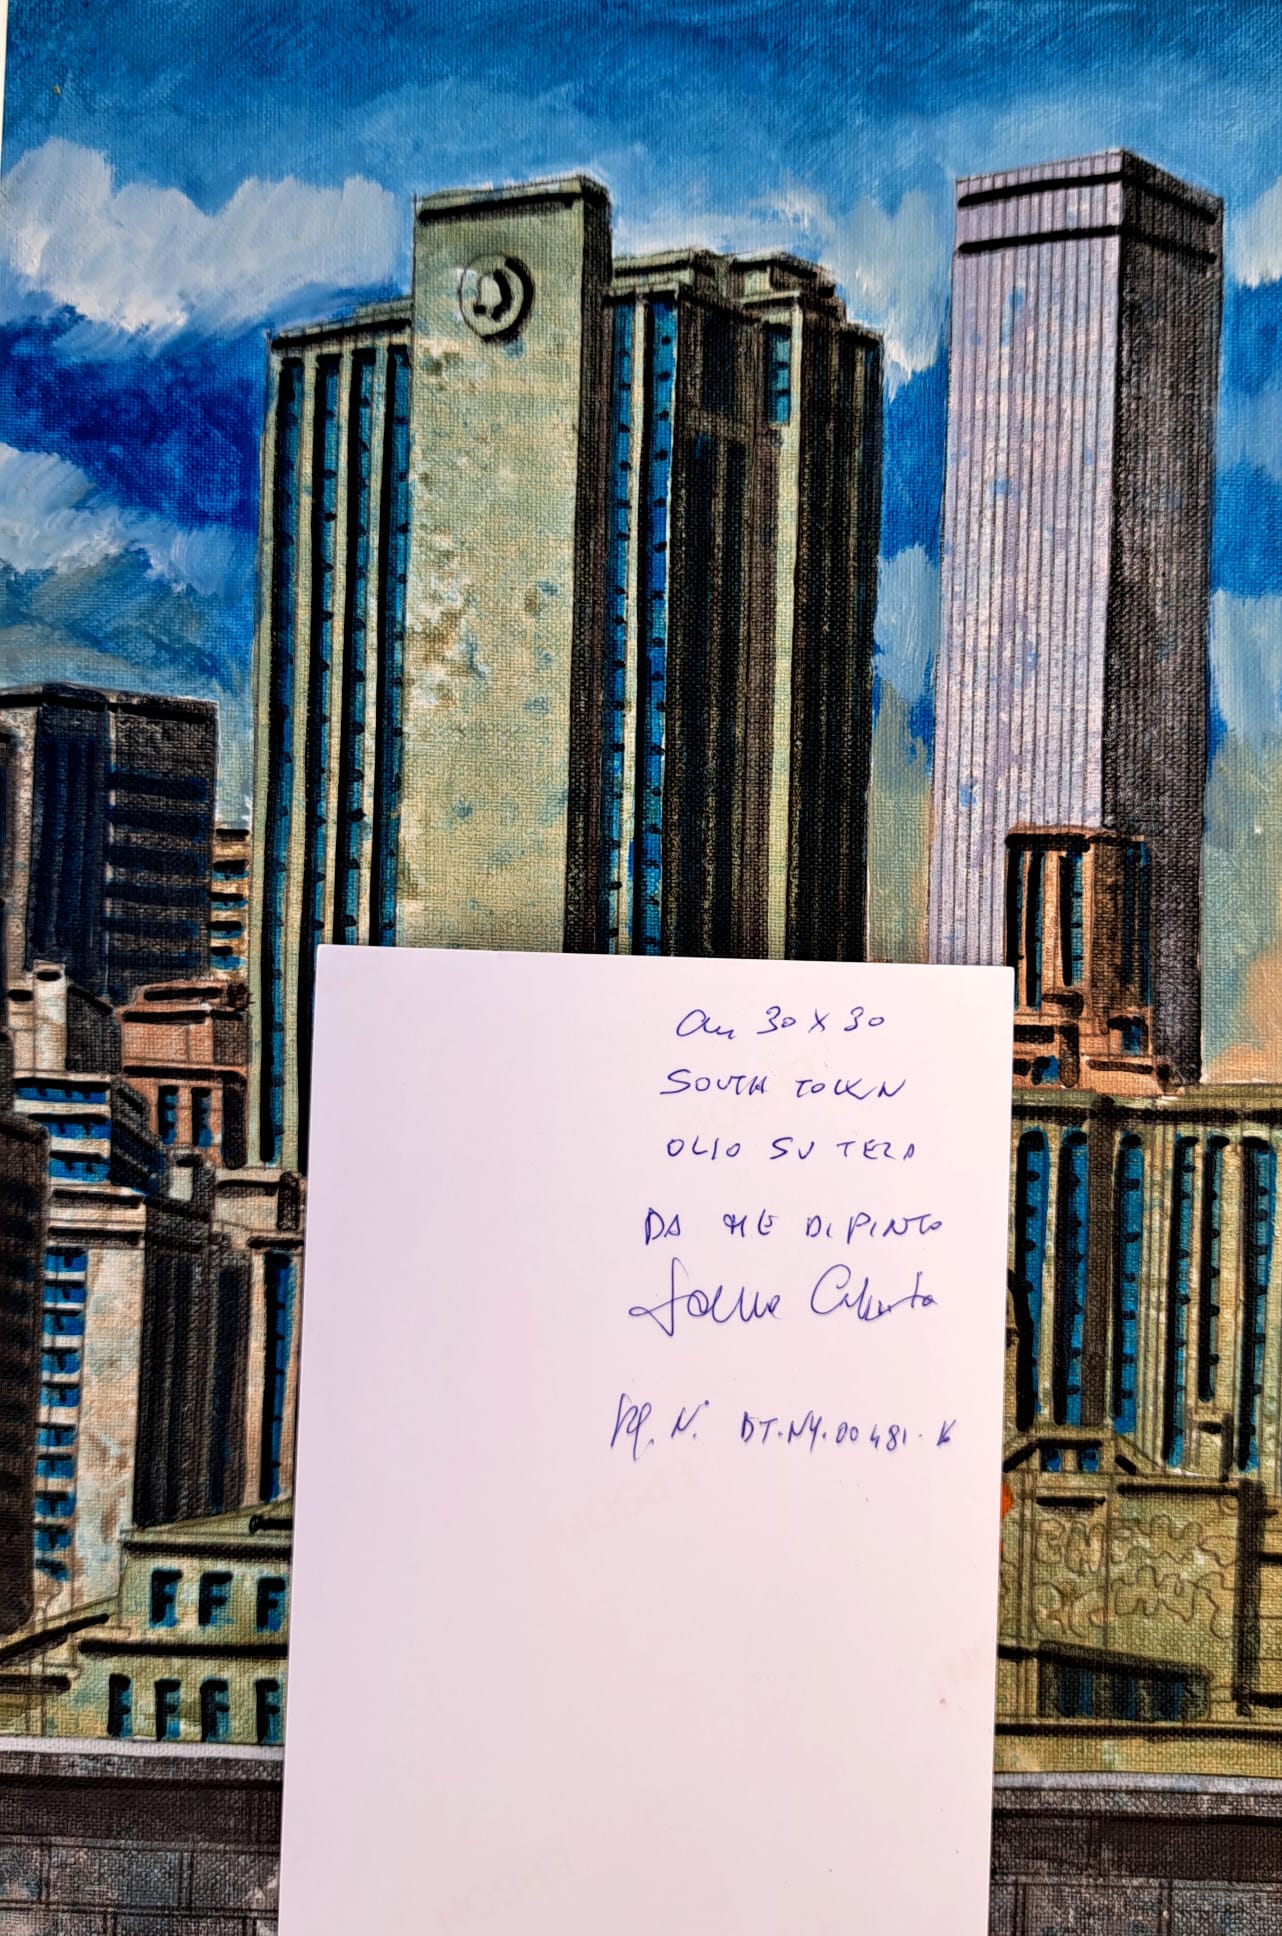 Cm 30 X 30
SOUTH TOWN
OLIO SU TELA
DA ME DIPINTO
N. DT.NY.00481.K